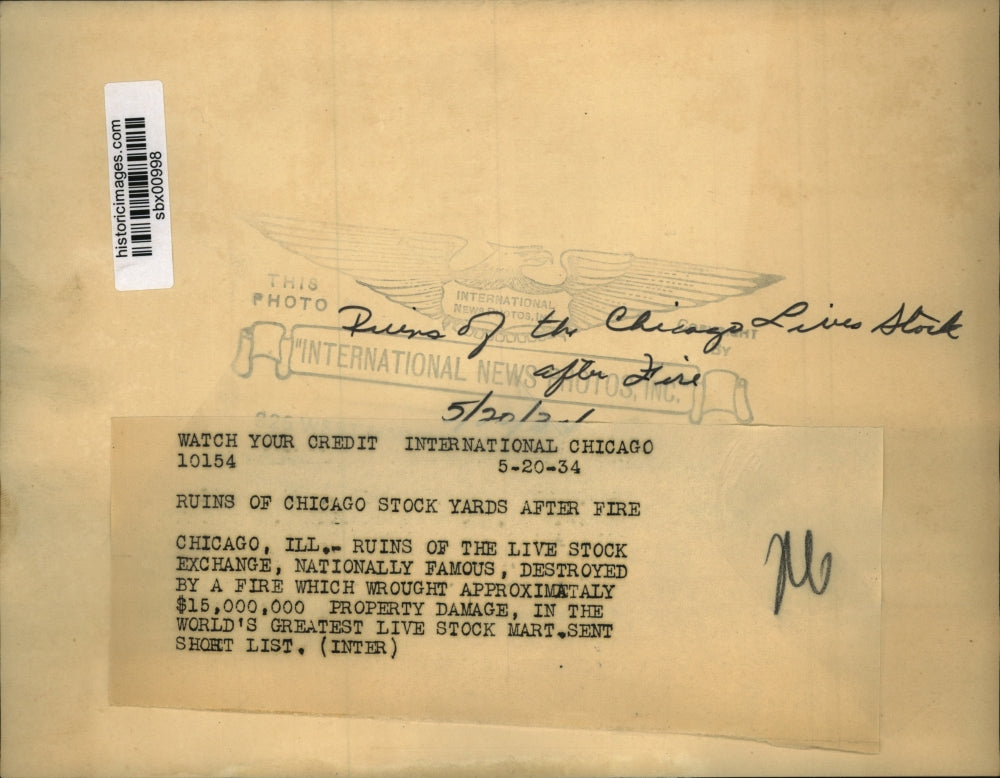 historicimages.com
sbx00998
THIS
PHOTO
INTERNATIONAL
NEWS PHOTOS, INC.
BY
"INTERNATIONAL NEWS PHOTOS, INC.
Ruins of the Chicago Lives Stock
after Fire
5/20/34
WATCH YOUR CREDIT INTERNATIONAL CHICAGO
10154 5-20-34
RUINS OF CHICAGO STOCK YARDS AFTER FIRE
CHICAGO, ILL.- RUINS OF THE LIVE STOCK
EXCHANGE, NATIONALLY FAMOUS, DESTROYED
BY A FIRE WHICH WROUGHT APPROXIMATALY
$15,000,000 PROPERTY DAMAGE, IN THE
WORLD'S GREATEST LIVE STOCK MART.SENT
SHORT LIST. (INTER)